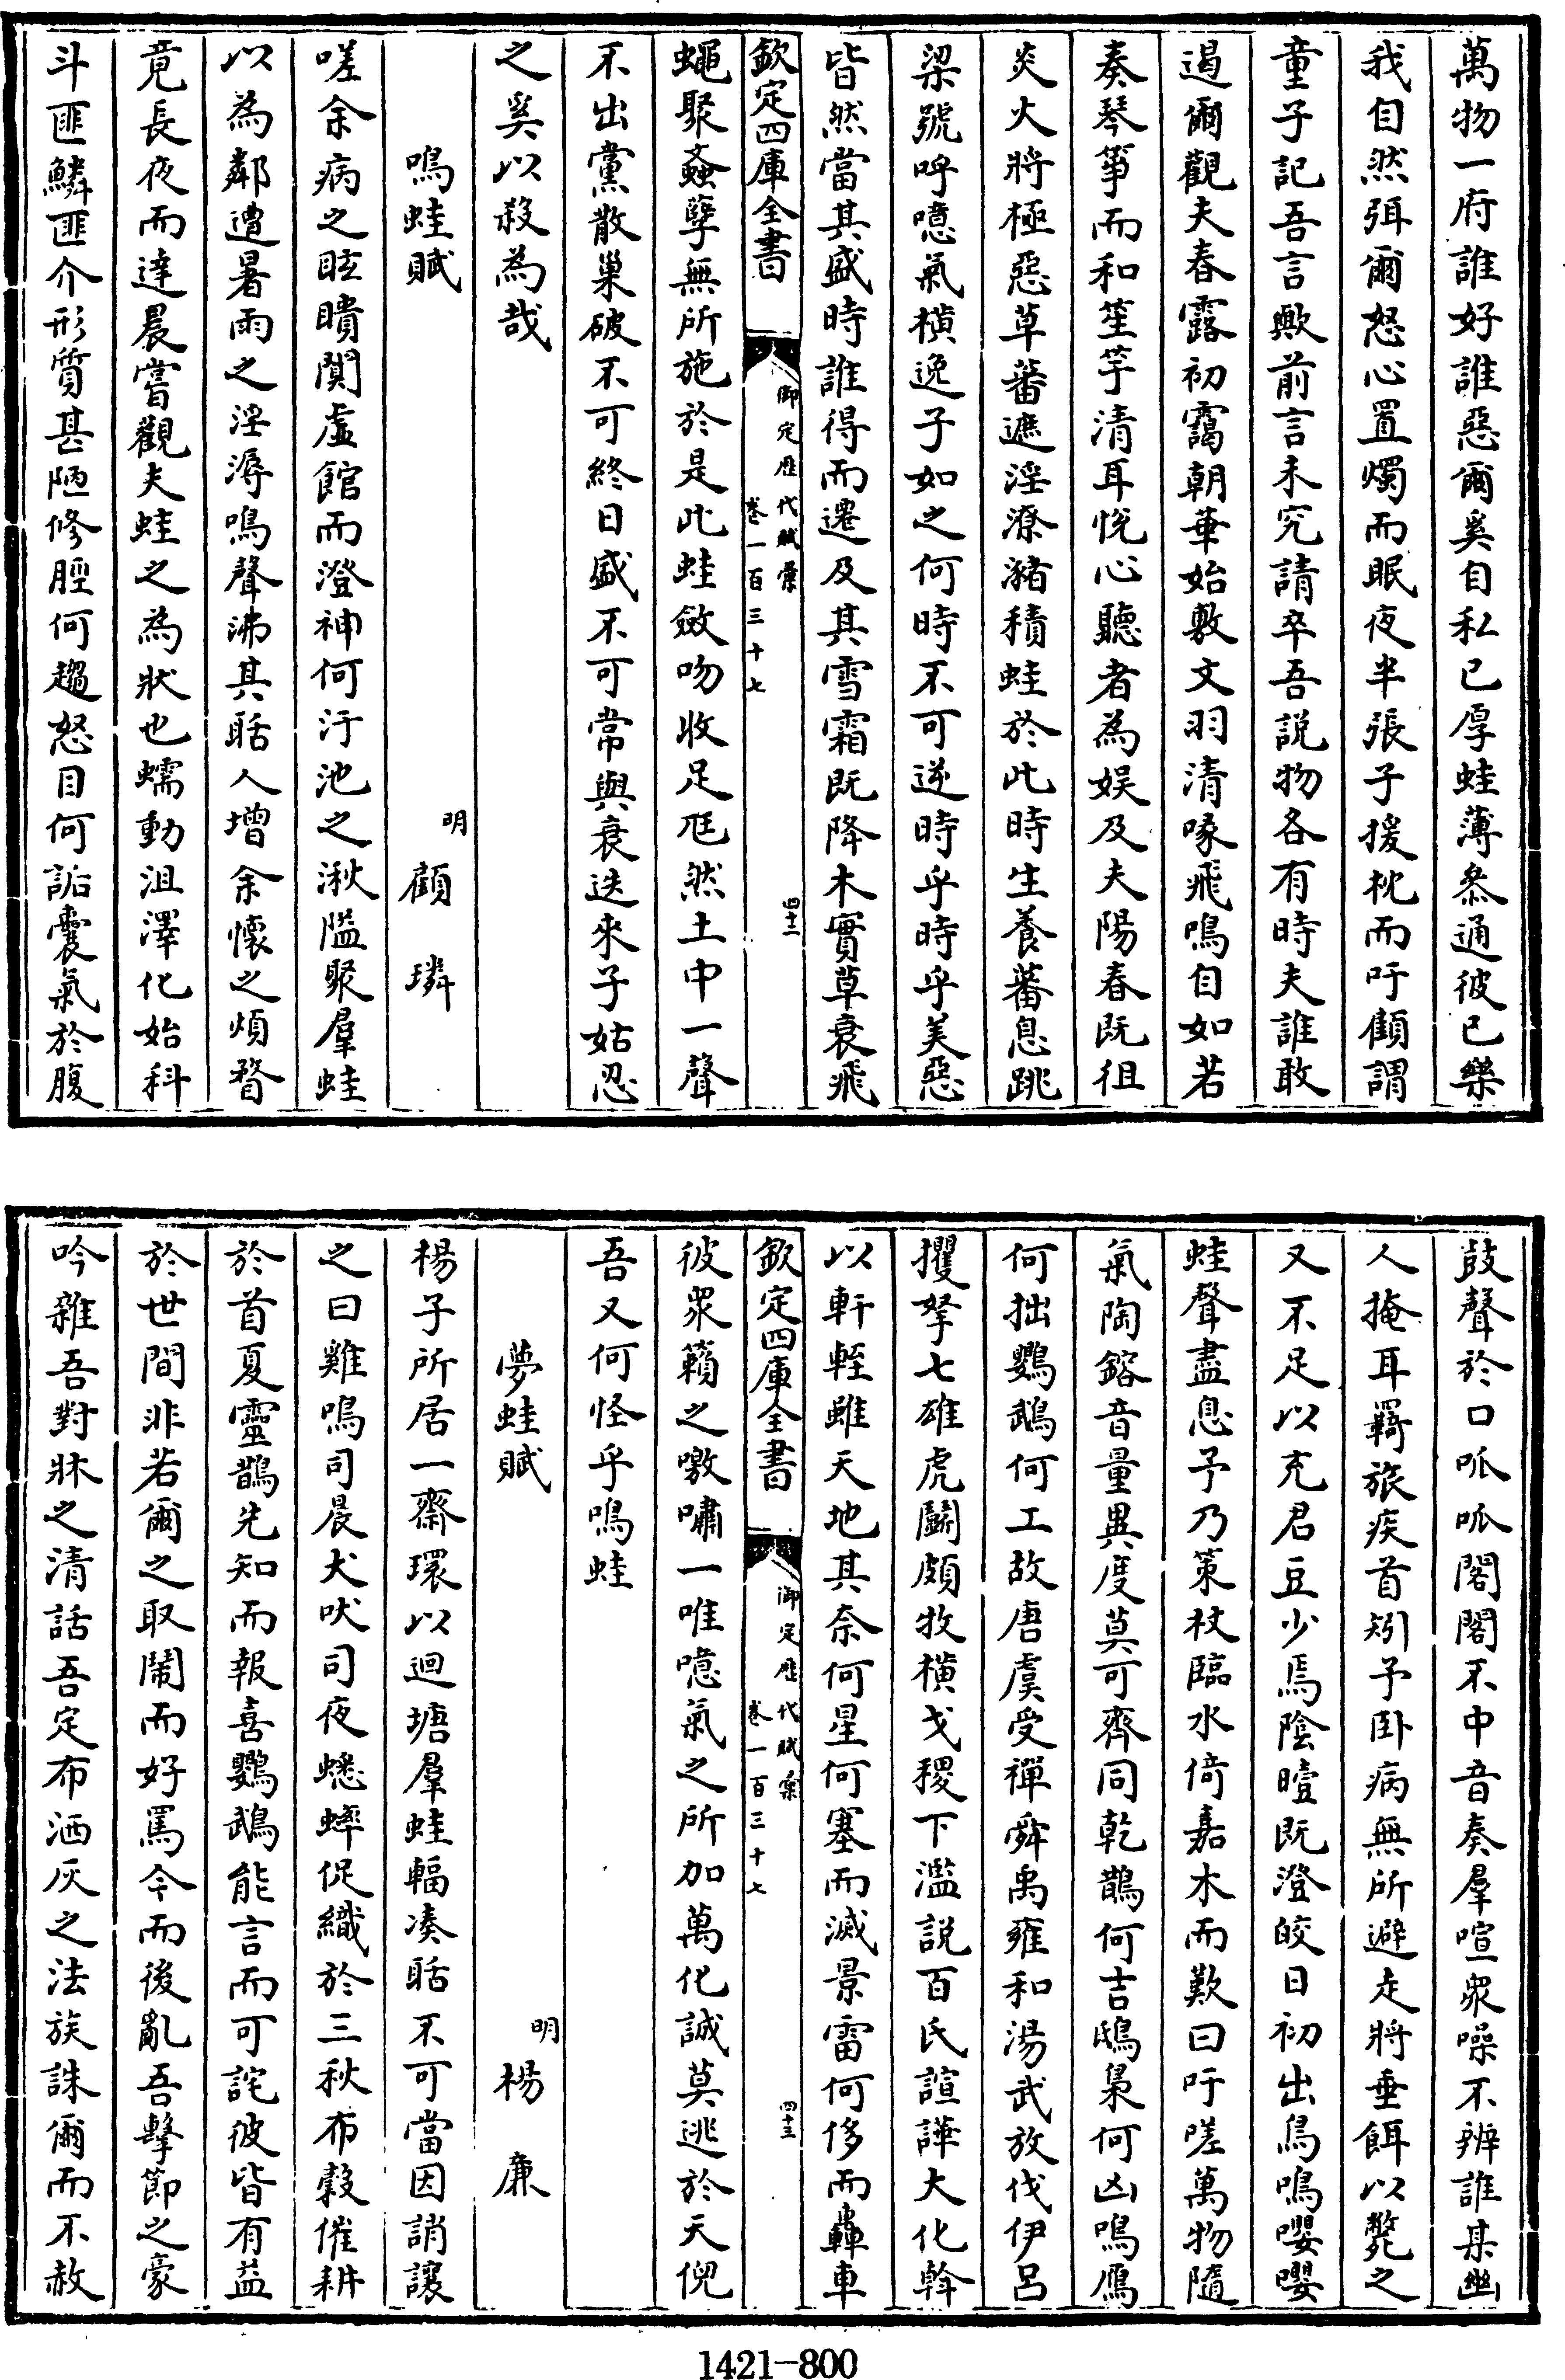 萬物一府誰好誰惡爾奚自私已厚蛙薄叅通彼已樂
我自然弭爾怒心置燭而眠夜半張子援枕而吁顧謂
童子記吾言歟前言未究請卒吾説物各有時夫誰敢
遏爾觀夫春露初靄朝華始敷文羽清喙飛鳴自如若
奏琴箏而和笙竽清耳悅心聽者為娱及夫陽春既徂
炎火將極惡草蕃遮淫潦瀦積蛙於此時生養蕃息跳
梁號呼噫氣橫逸子如之何時不可逆時乎時乎美惡
皆然當其盛時誰得而遷及其雪霜既降木實草衰飛
欽定四庫全書 御定歴代賦彙 卷一百三十七 四十二
蠅聚螽孽無所施於是此蛙斂吻收足尫然土中一聲
不出黨散巢破不可終日盛不可常與衰迭來子姑忍
之奚以殺為哉
鳴蛙賦
明 顧璘
嗟余病之眩瞶闃虛館而澄神何汙池之湫隘聚羣蛙
以為鄰遭暑雨之淫溽鳴聲沸其聒人增余懷之煩瞀
竟長夜而達晨嘗觀夫蛙之為狀也蠕動沮澤化始科
斗匪鱗匪介形質甚陋修脛何趨怒目何詬囊氣於腹
鼓聲於口呱呱閣閣不中音奏羣喧眾噪不辨誰某幽
人掩耳羇旅疾首矧予卧病無所避走將垂餌以斃之
又不足以充君豆少焉陰曀既澄皎日初出鳥鳴嚶嚶
蛙聲盡息予乃策杖臨水倚嘉木而歎曰吁嗟萬物隨
氣陶鎔音量異度莫可齊同乾鵲何吉鴟梟何凶鳴鴈
何拙鸚鵡何工故唐虞受禪舜禹雍和湯武放伐伊呂
攫拏七雄虎鬭頗牧橫戈稷下濫説百氏諠譁大化斡
以軒輊雖天地其奈何星何塞而滅景雷何侈而轟車
欽定四庫全書 御定歴代賦彙 卷一百三十七 四十三
彼眾籟之噭嘯一唯噫氣之所加萬化誠莫逃於天倪
吾又何怪乎鳴蛙
夢蛙賦
明 楊廉
楊子所居一齋環以迴塘羣蛙輻湊聒不可當因誚讓
之曰雞鳴司晨犬吠司夜蟋蟀促織於三秋布穀催耕
於首夏靈鵲先知而報喜鸚鵡能言而可詫彼皆有益
於世間非若爾之取鬧而好罵今而後亂吾擊節之豪
吟雜吾對牀之清話吾定布洒灰之法族誅爾而不赦
1421-800